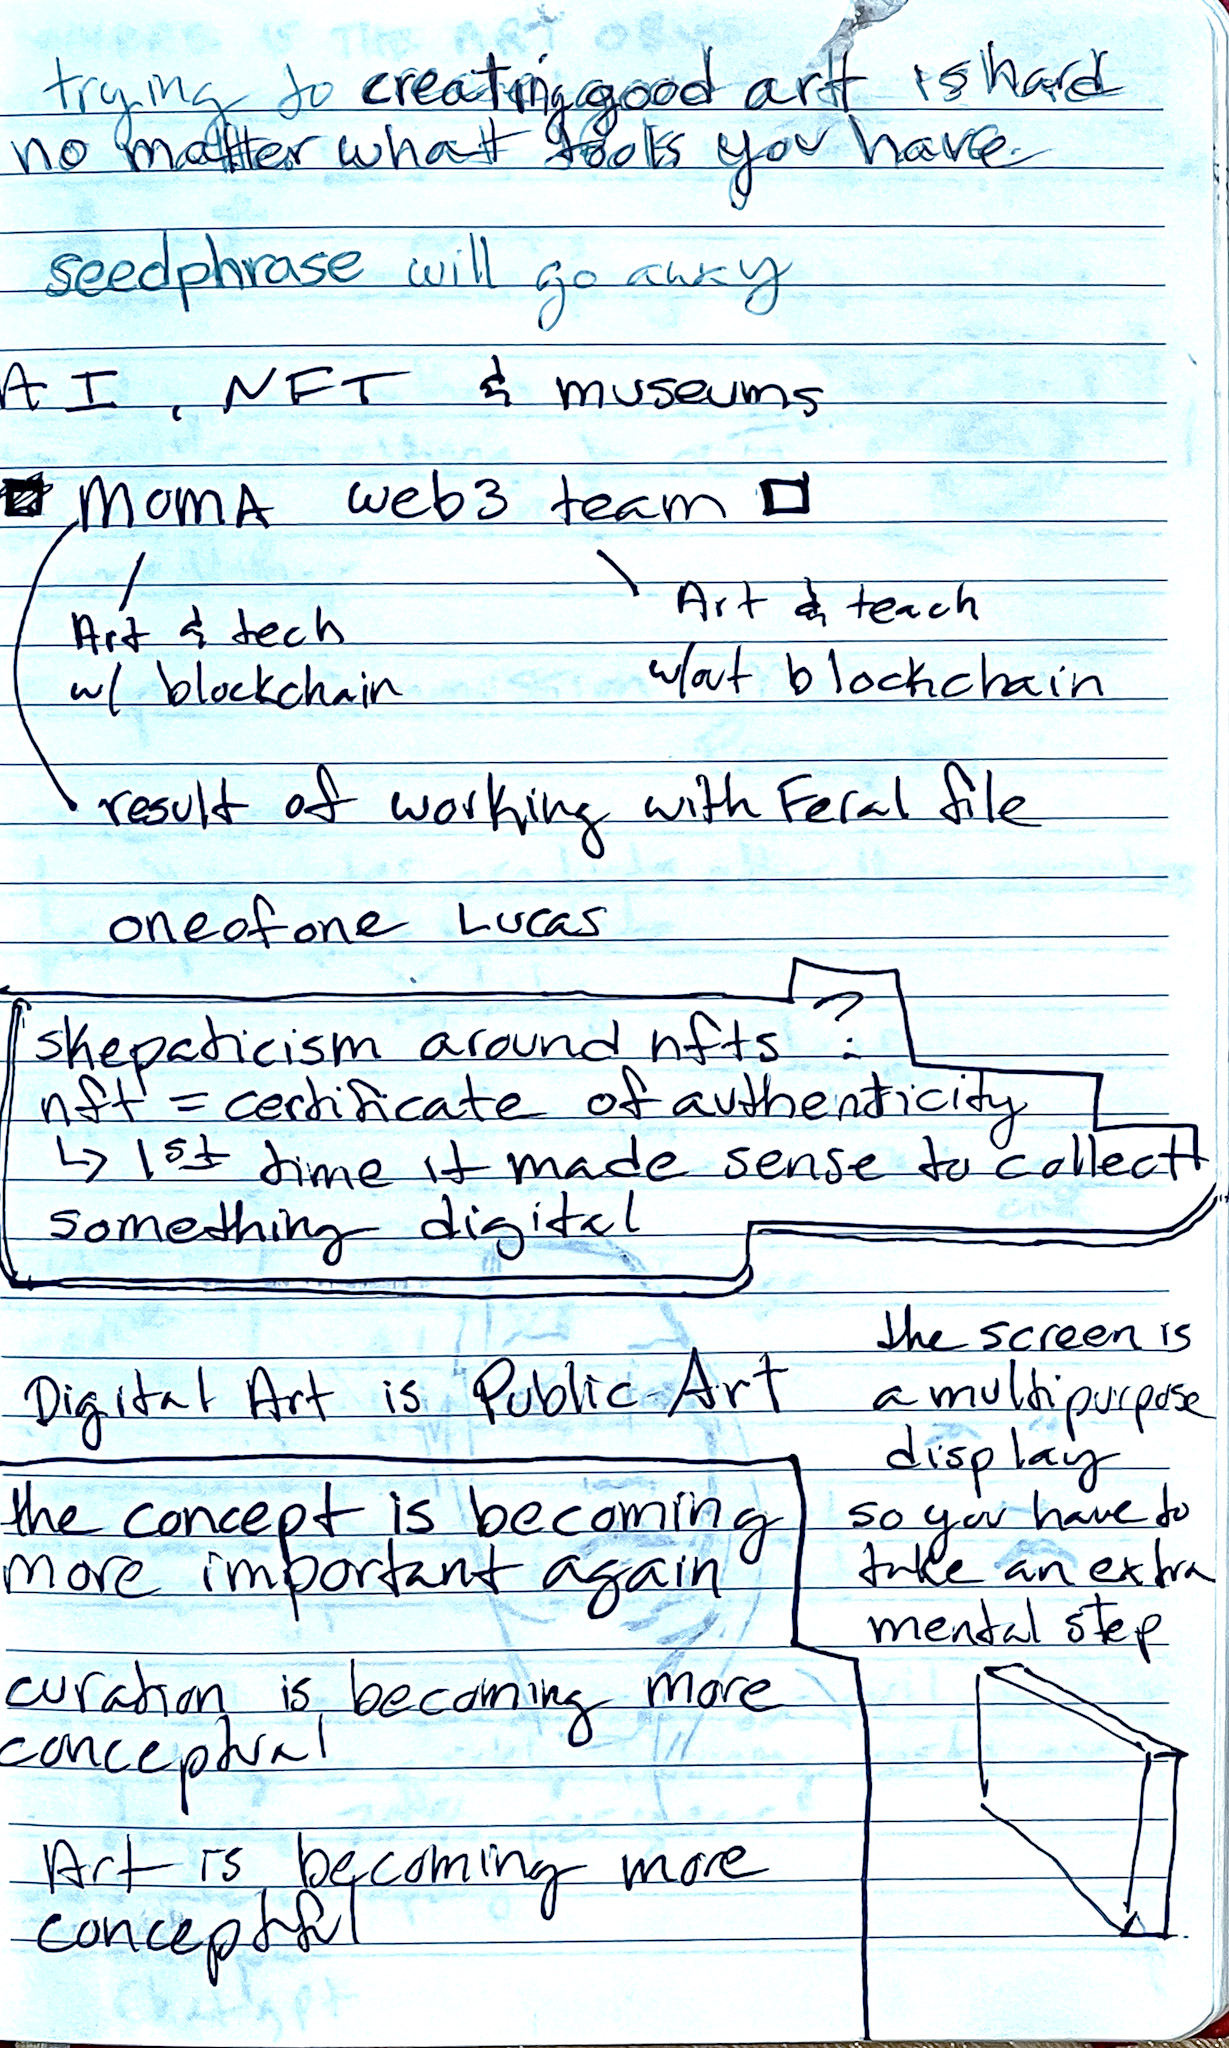 trying to creating good art is hard
no matter what tools you have
seedphrase will go away
AI, NFT & museums
MOMA web3 team
Art & tech
w/ blockchain
Art & teach
w/out blockchain
result of working with Feral file
oneofone Lucas
skepaticism around nfts ?
nft = certificate of authenticity
↳ 1st time it made sense to collect
something digital
Digital Art is Public Art
the screen is
a multipurpose
display
so you have to
take an extra
mental step
the concept is becoming
more important again
curation is becoming more
conceptual
Art is becoming more
conceptful